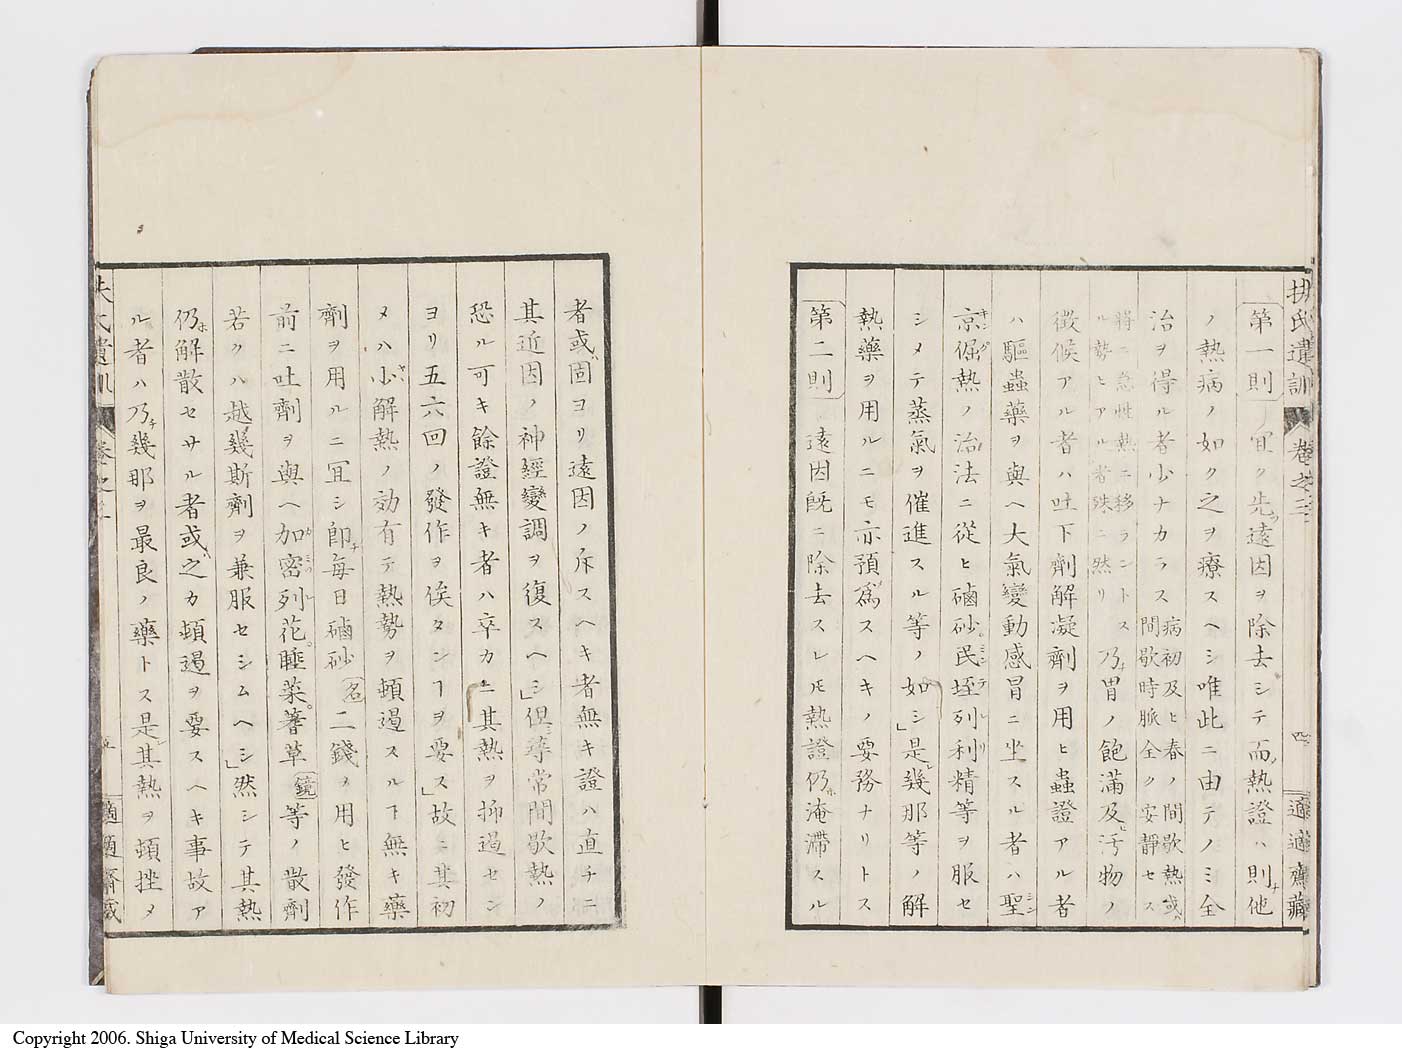 扶氏遺訓 卷之三 四 適適齋藏
第一則 宜ク先ツ遠因ヲ除去シテ而ノ熱證ハ則チ他
ノ熱病ノ如ク之ヲ療スヘシ唯此ニ由テノミ全
治ヲ得ル者少ナカラス病初及ヒ春ノ間歇熱或ハ
間歇時脈全ク安靜セス
將ニ怠性熱ニ移ラントス
ル勢ヒアル者殊ニ然リ乃チ胃ノ飽滿及ヒ汚物ノ
徵候アル者ハ吐下劑解凝劑ヲ用ヒ蟲證アル者
ハ驅蟲藥ヲ與ヘ大氣變動感冒ニ坐スル者ハ聖
京倔熱ノ治法ニ從ヒ磠砂民垤列利精等ヲ服セ
シメテ蒸氣ヲ催進スル等ノ如シ」是レ幾那等ノ解
熱藥ヲ用ルニモ亦預シメ爲スヘキノ要務ナリトス
第二則 遠因既ニ除去スレ𪜈熱證仍ホ淹滯スル
者或ハ固ヨリ遠因ノ斥スヘキ者無キ證ハ直チニ
其近因ノ神經變調ヲ復スヘシ」但シ尋常間歇熱ノ
恐ル可キ餘證無キ者ハ卒カニ其熱ヲ抑遏セン
ヨリ五六回ノ發作ヲ俟タンヿヲ要ス」故ニ其初
メハ小解熱ノ効有テ熱勢ヲ頓遏スルヿ無キ藥
劑ヲ用ルニ宜シ卽チ每日磠砂名二錢ヲ用ヒ發作
前ニ吐劑ヲ與ヘ加密列花。睡菜。蓍草鏡等ノ散劑
若クハ越幾斯劑ヲ兼服セシムヘシ」然シテ其熱
仍ホ解散セサル者或ハ之カ頓遏ヲ要スヘキ事故ア
ル者ハ乃チ幾那ヲ最良ノ藥トス是レ其熱ヲ頓挫メ
扶氏遺訓 卷之三 五 適適齋藏
Copyright 2006. Shiga University of Medical Science Library